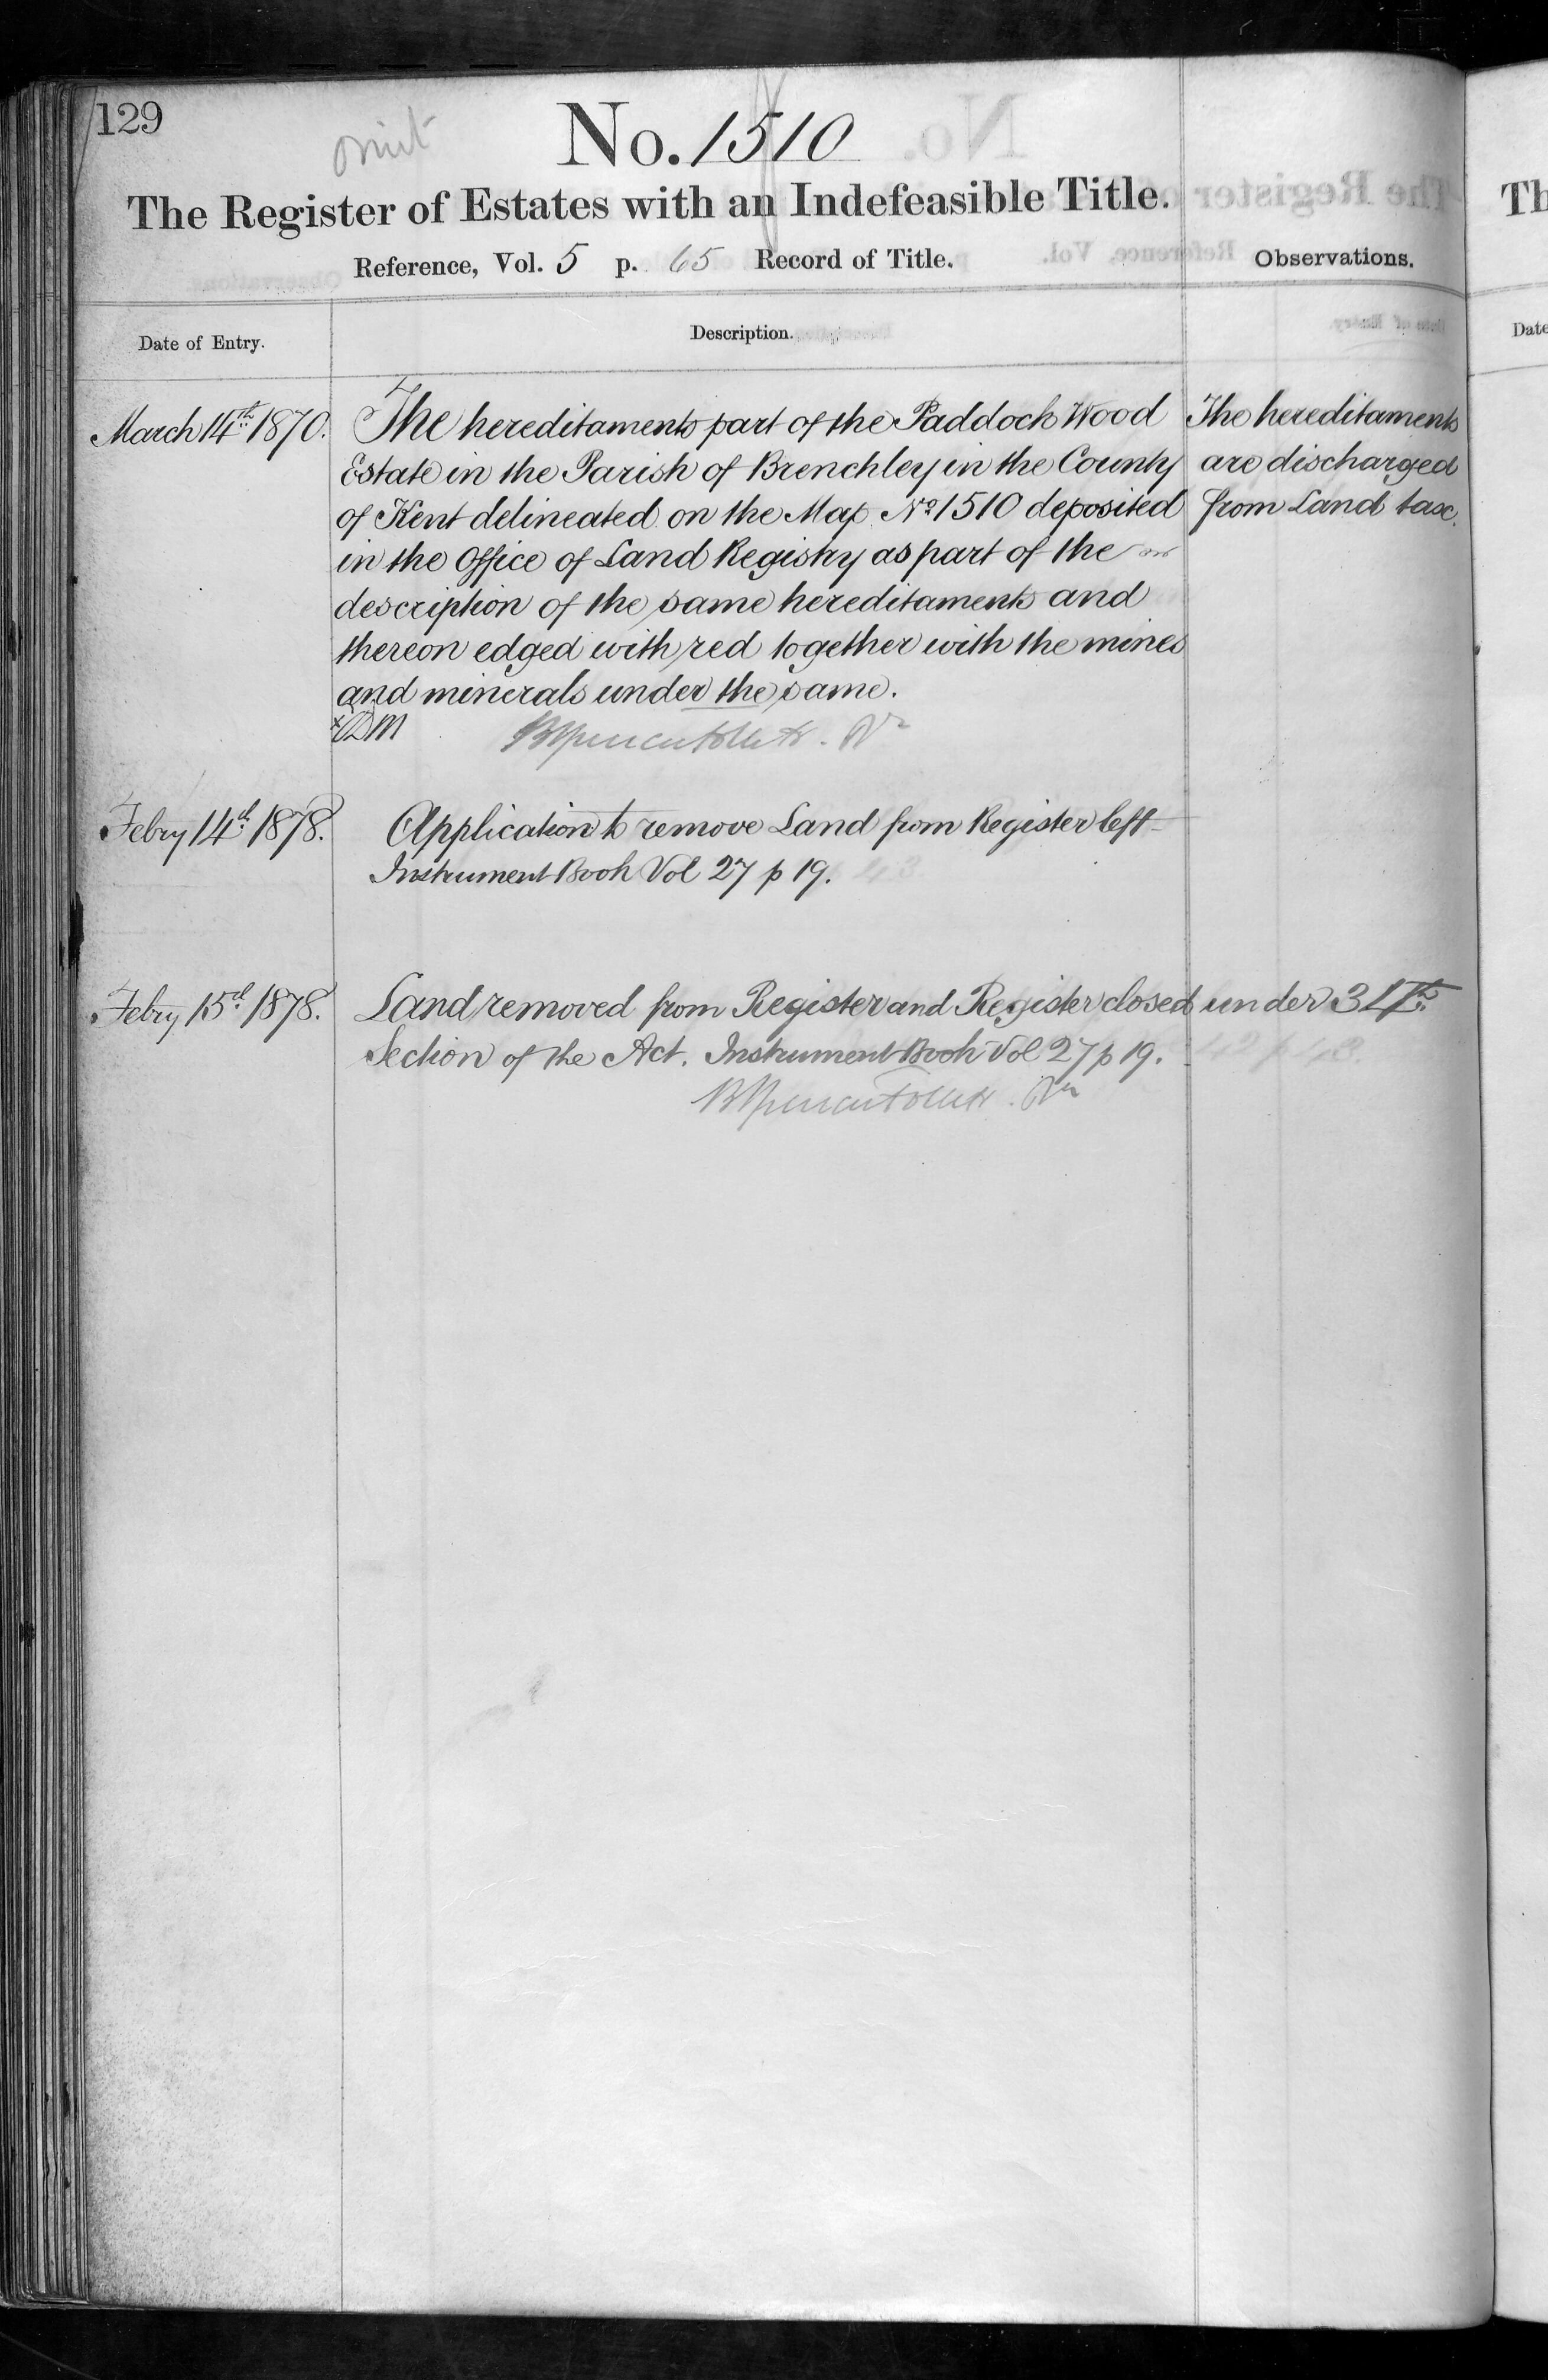 129
omit
No. 1510
The Register of Estates with an Indefeasible Title.
Reference, Vol. 5 p. 65 Record of Title.
Observations.
Date of Entry.
Description.
March 14th 1870.
The hereditaments part of the Paddock Wood
Estate in the Parish of Brenchley in the County
of Kent delineated on the Map No 1510 deposited
in the Office of Land Registry as part of the
description of the same hereditaments and
thereon edged with red together with the mines
and minerals under the same.
The hereditaments
are discharged
from Land tax.
Febry 14th 1878.
Application to remove Land from Register left
Instrument Book Vol 27 p 19.
Febry 15th 1878.
Land removed from Register and Register closed under 34th
Section of the Act. Instrument Book Vol 27 p 19.
Th
Date